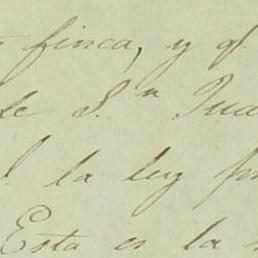 finca, y qe
de S.n Jua
la luz
Esta es la